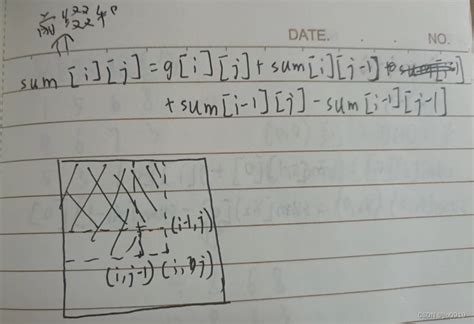 DATE. NO.
sum[i][j] = g[i][j] + sum[i][j-1]
+ sum[i-1][j] - sum[i-1][j-1]
(i-1,j)
(i,j-1) (i,j)